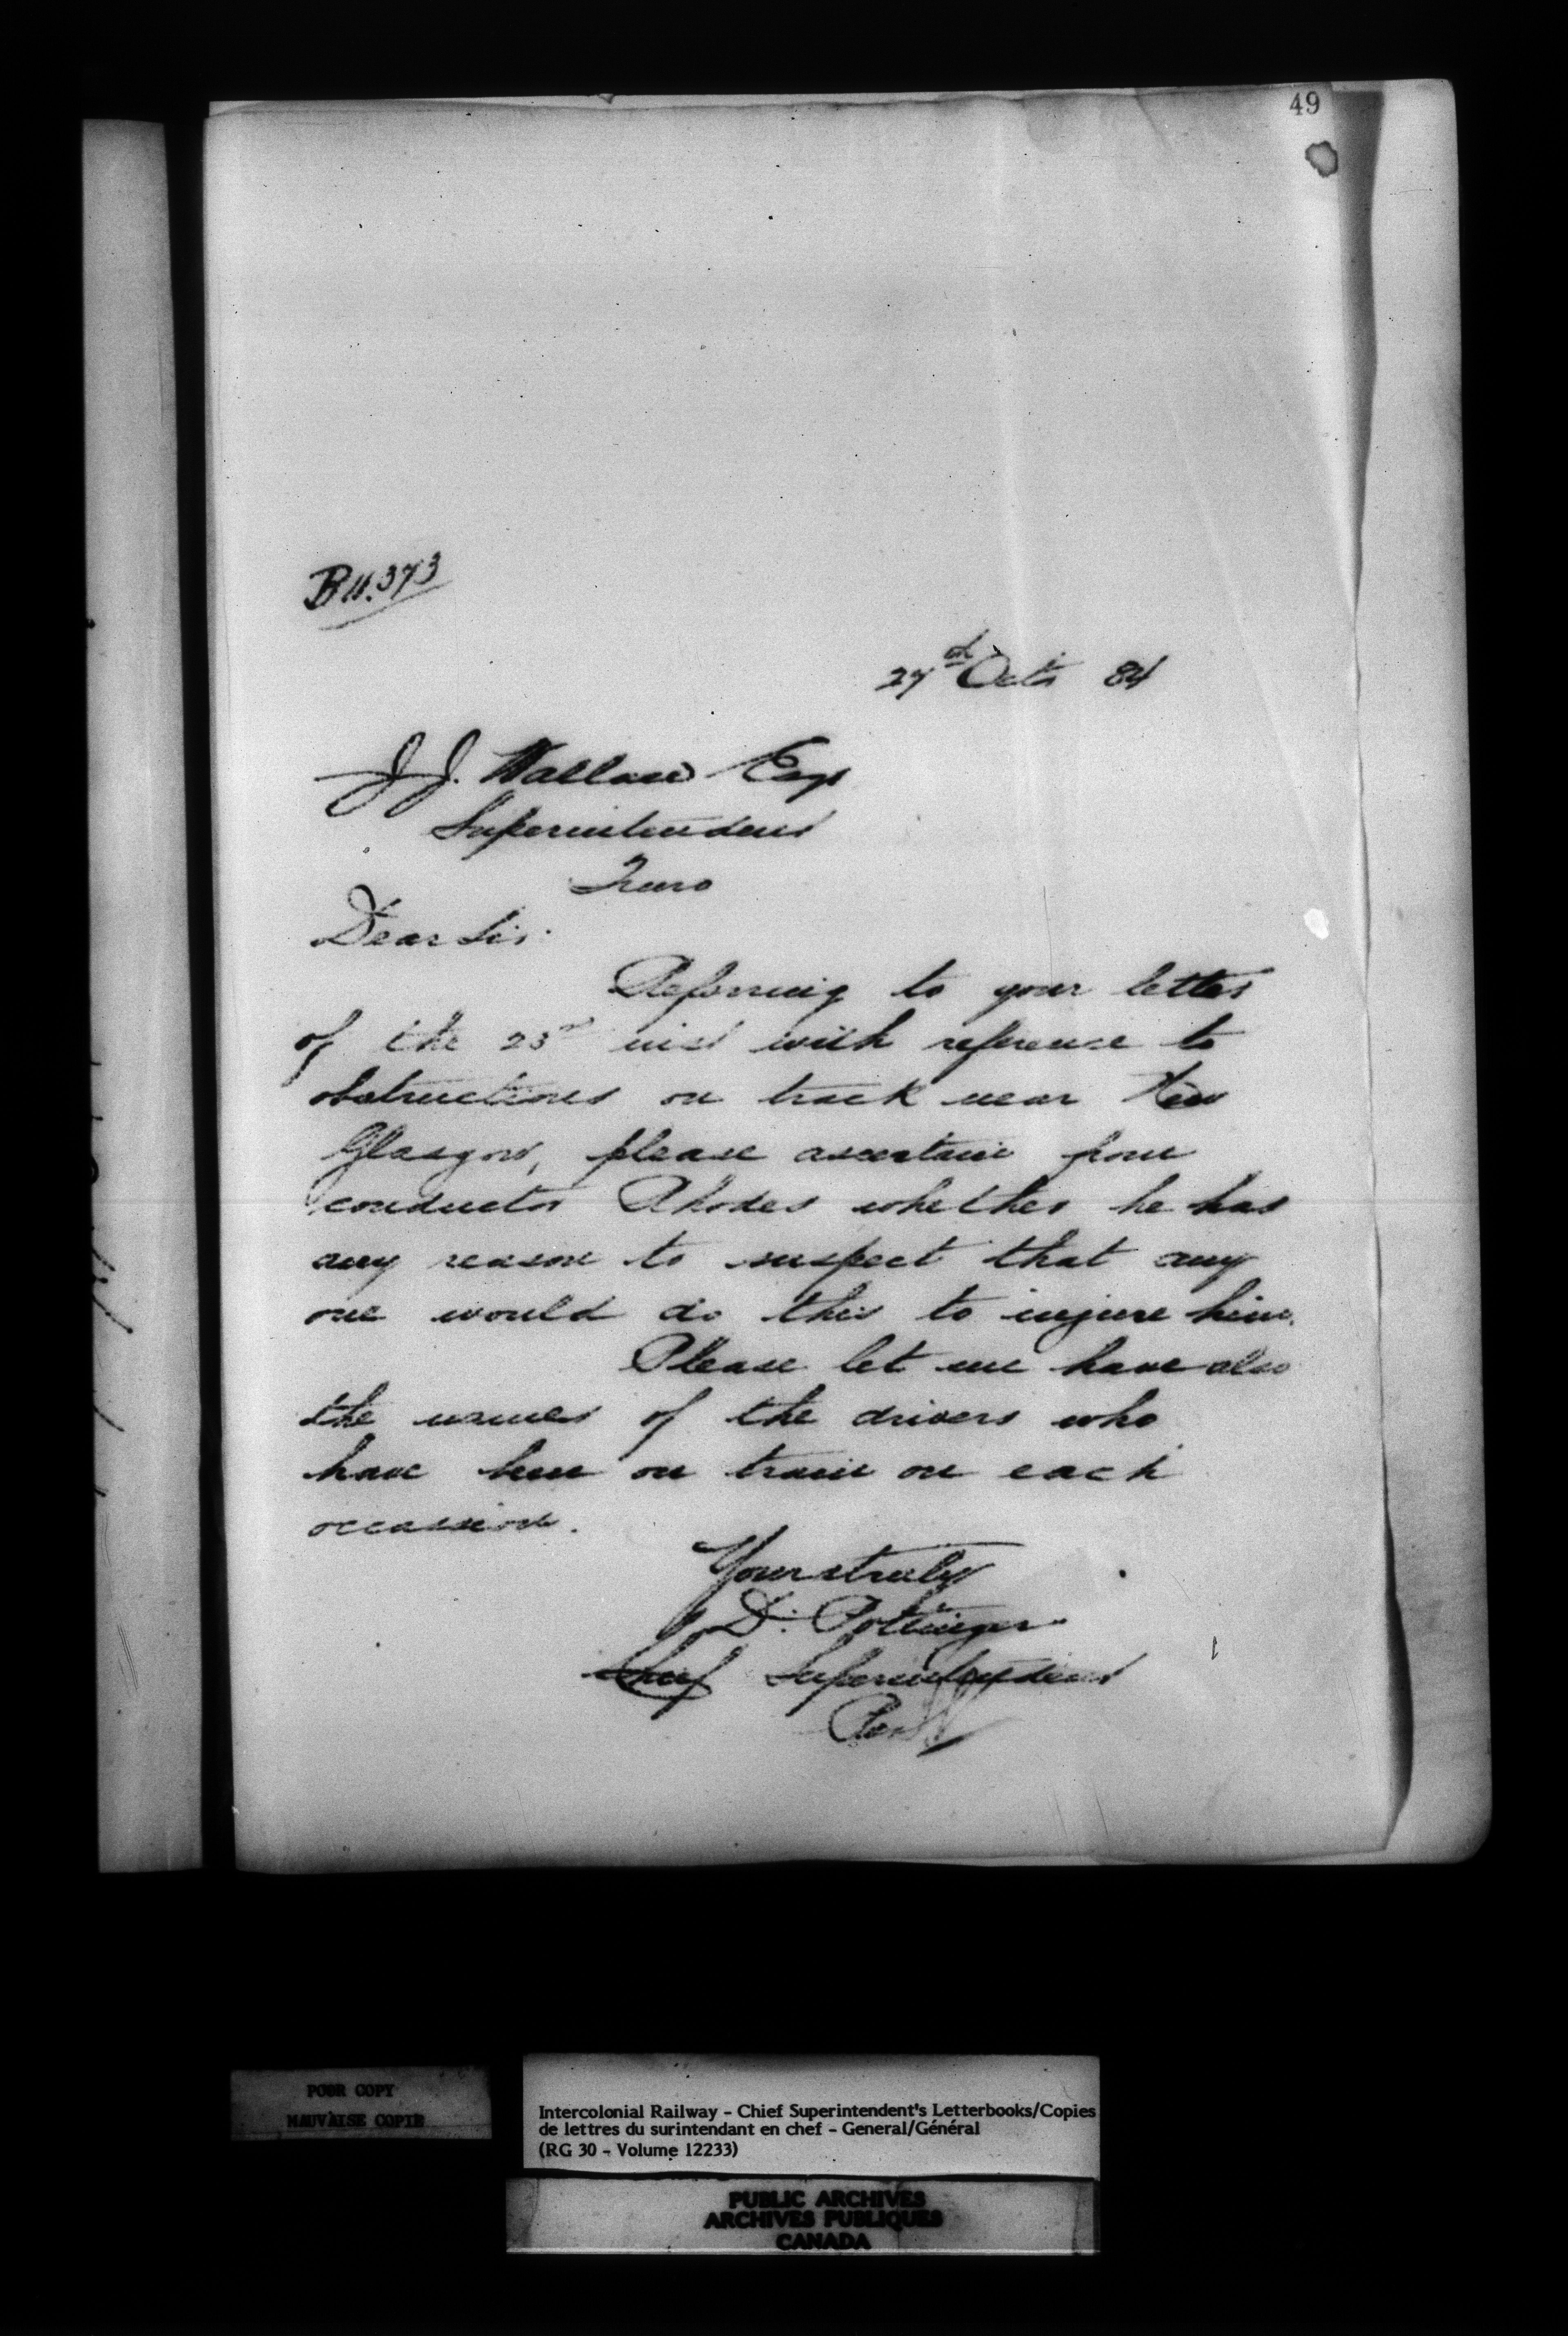 49
B11.373
27th Octr 84
J.J. Wallace Esqr
Superintendent
Truro
Dear Sir:
Referring to your letter
of the 23rd inst with reference to
obstructions on track near New
Glasgow, please ascertain from
conductor Rhodes whether he has
any reason to suspect that any
one would do this to injure him.
Please let me have also
the names of the drivers who
have been on train on each
occassion.
Yours truly
D. Pottinger
Chief Superintendent
Per
POOR COPY
MAUVAISE COPIE
Intercolonial Railway - Chief Superintendent's Letterbooks/Copies
de lettres du surintendant en chef - General/Général
(RG 30 - Volume 12233)
PUBLIC ARCHIVES
ARCHIVES PUBLIQUES
CANADA